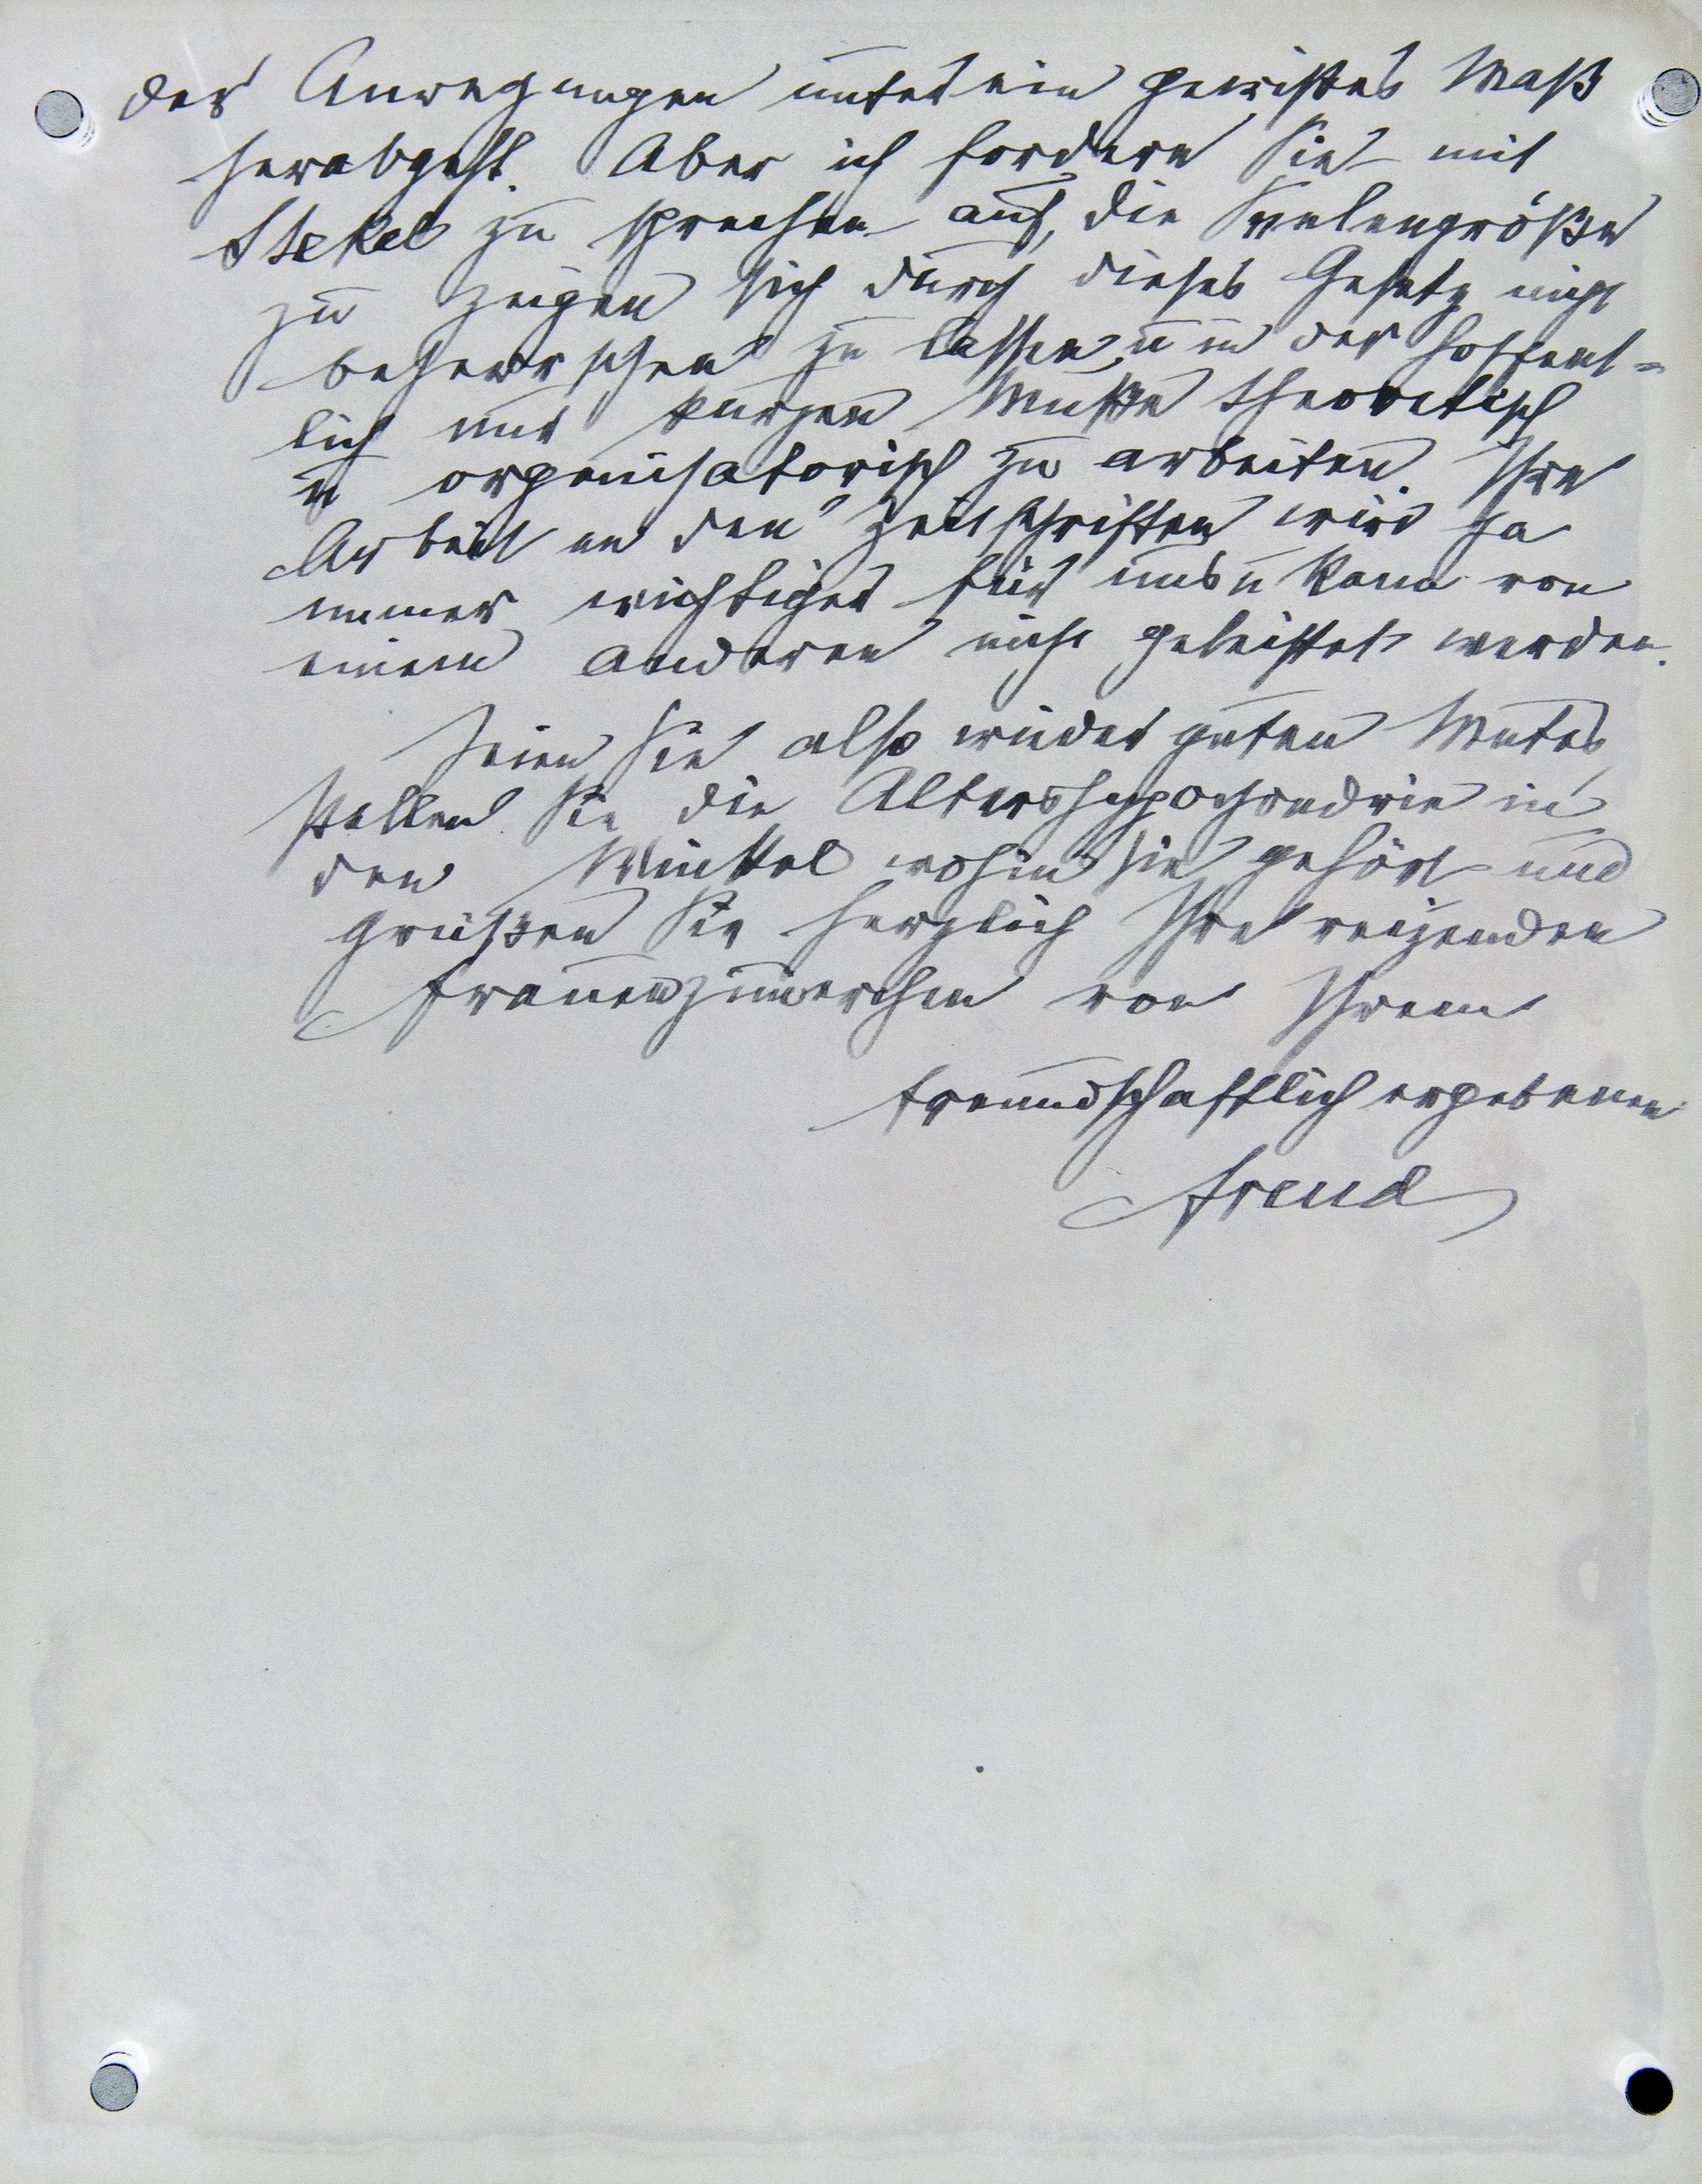 der Anregungen unter ein gewisses Maß
herabgeht. Aber ich fordere Sie mit
Stekel zu sprechen auf, die Seelengröße
zu zeigen sich durch dieses Gesetz nicht
beherrschen zu lassen, u in der hoffent-
lich nur kurzen Muße theoretisch
u organisatorisch zu arbeiten. Ihre
Arbeit an den Zeitschriften wird ja
immer wichtiger für uns u kann von
einem anderen nicht geleistet werden.
Seien Sie also wieder guten Mutes,
stellen Sie die Altershypochondrie in
den Winkel wohin sie gehört und
grüßen Sie herzlich Ihre reizenden
Frauenzimmerchen von Ihrem
freundschaftlich ergebenen
Freud